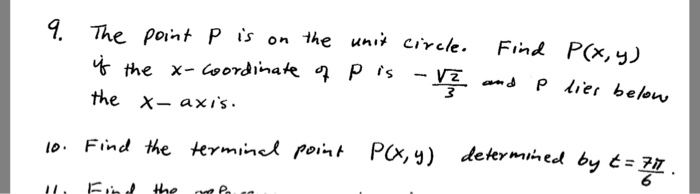 9. The point P is on the unit circle. Find P(x,y)
if the x-coordinate of P is -√2/3 and P lies below
the x-axis.
10. Find the terminal point P(x,y) determined by t = 7π/6.
11. Find the